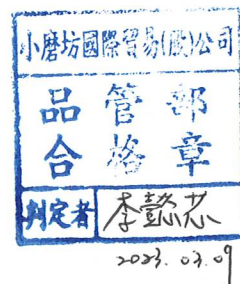 小磨坊國際貿易(股)公司
品管部
合格章
判定者 李懿芯
2023.03.09